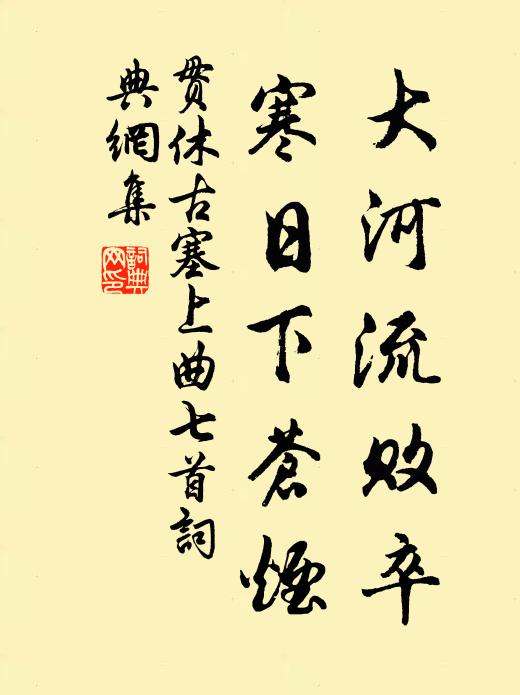 大河流败卒
寒日下蒼煙
贯休古塞上曲七首詞
典網集
詞典网印